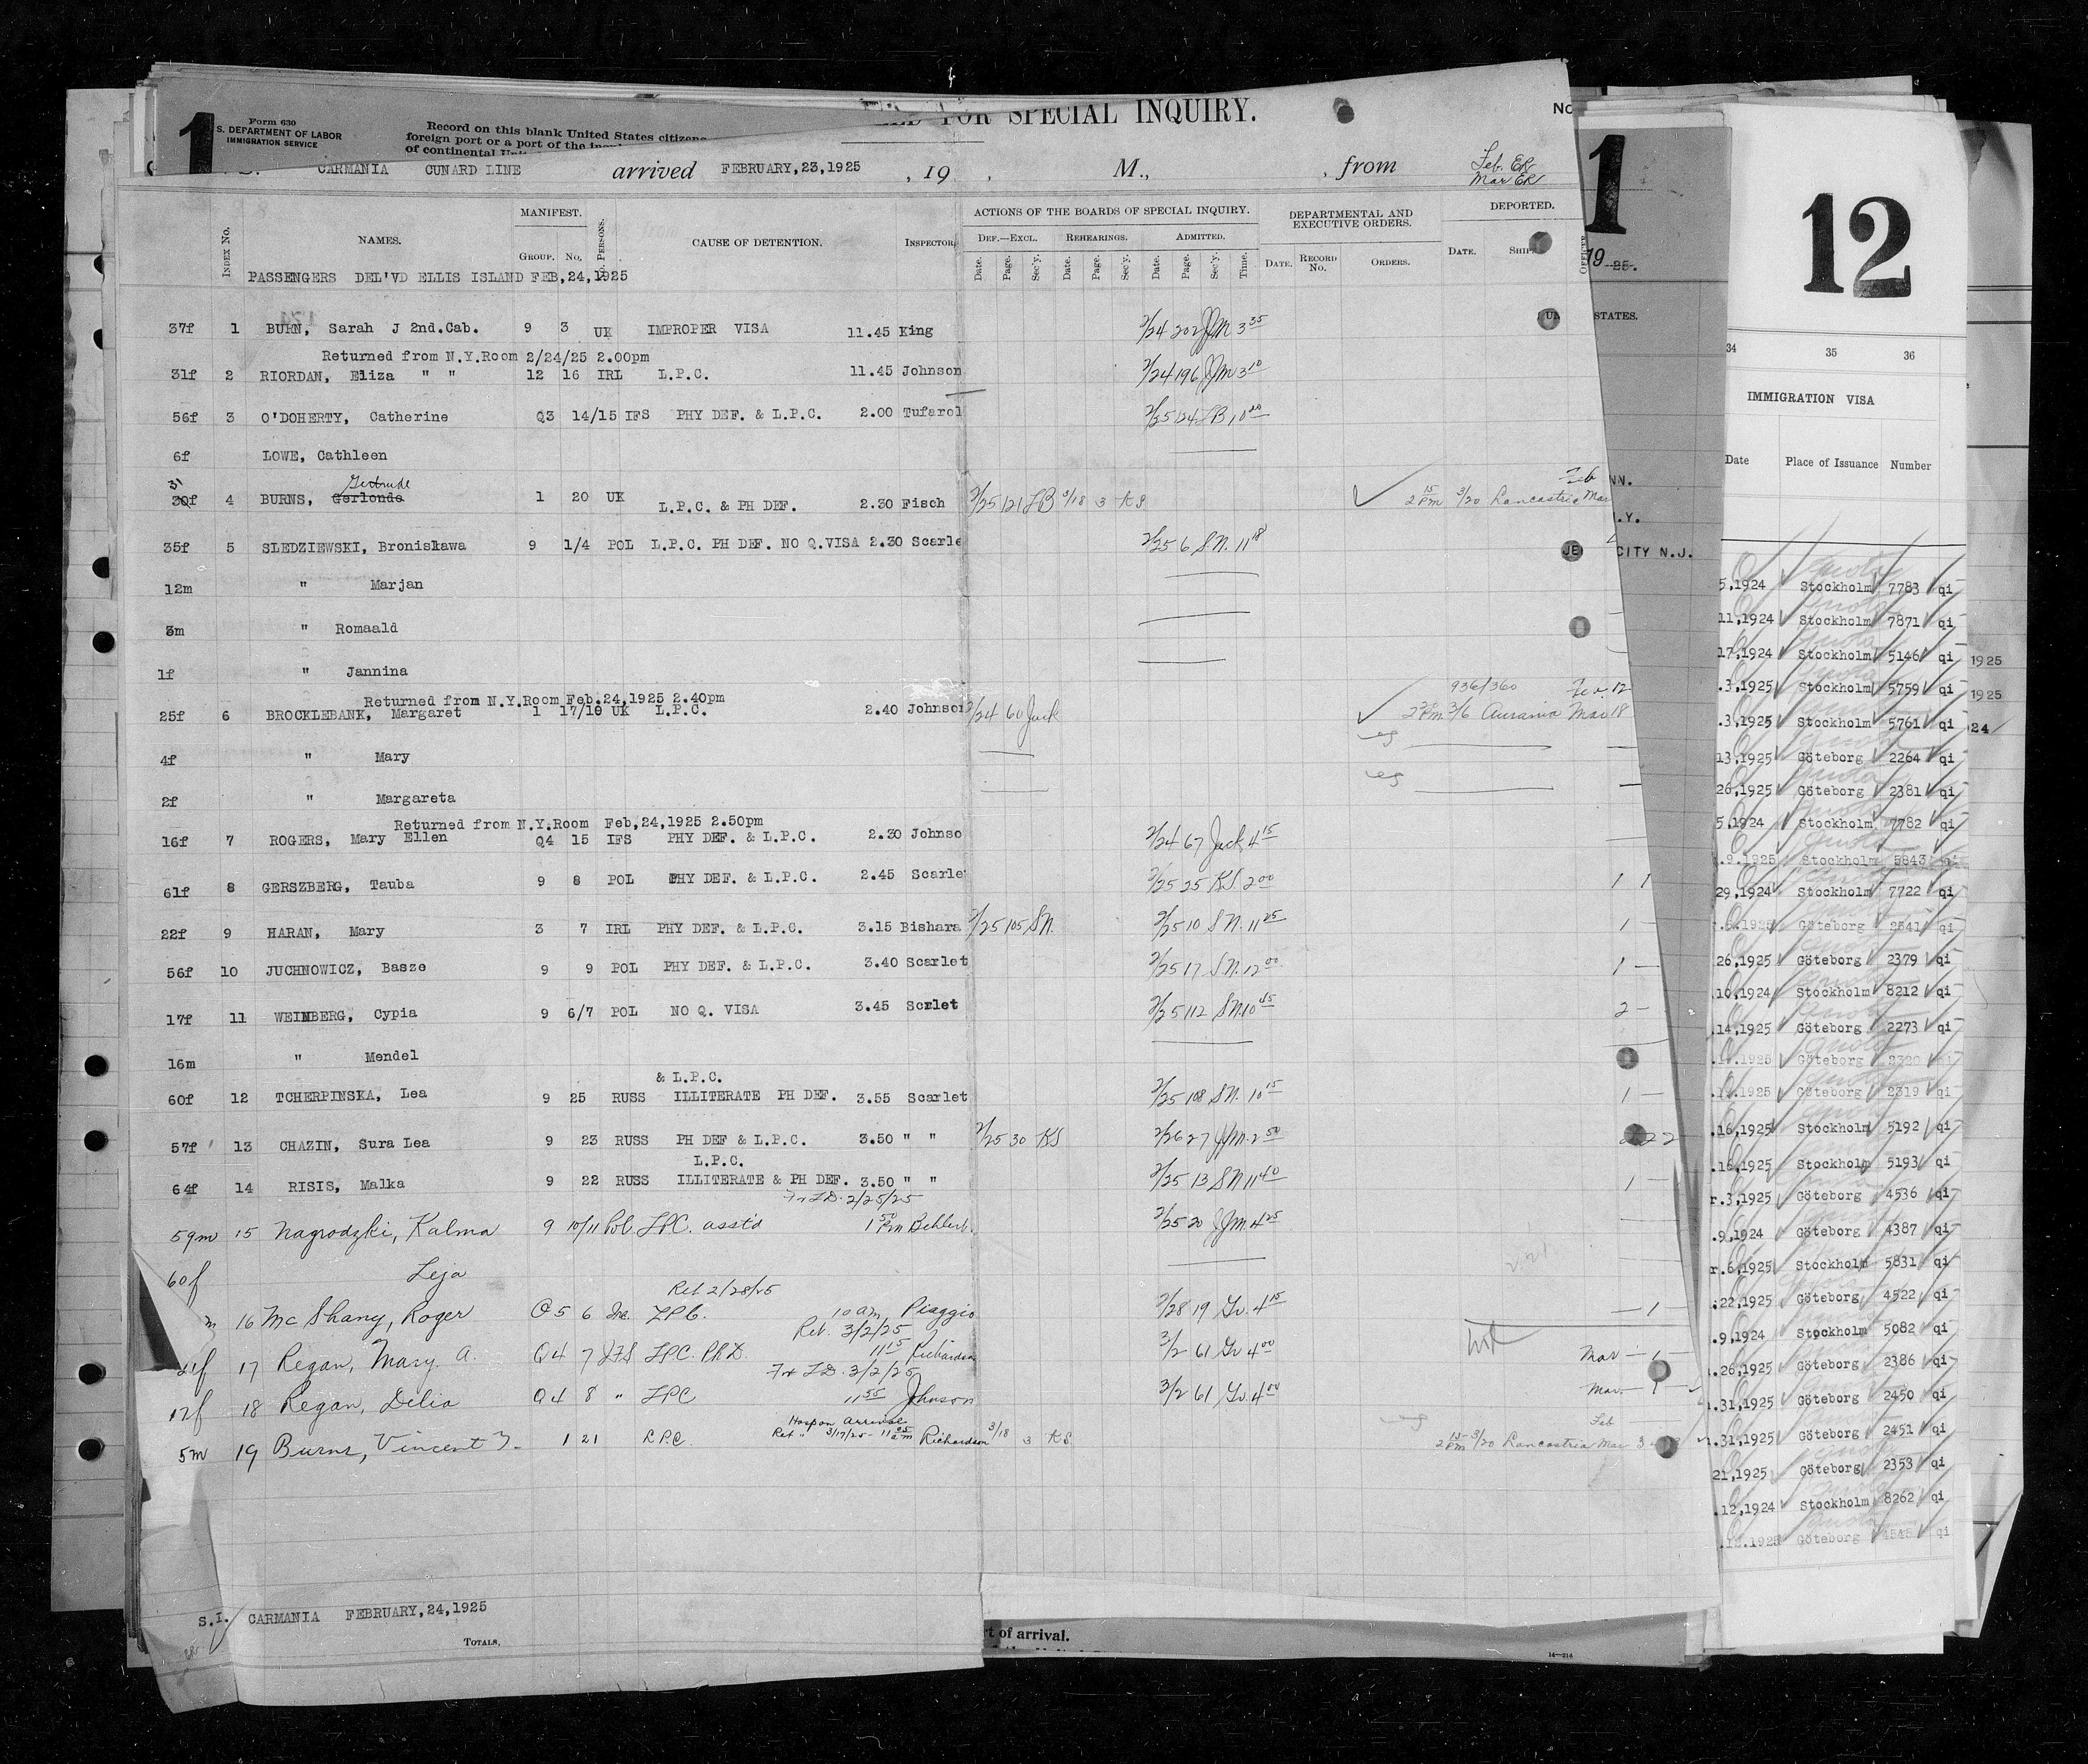 FOR SPECIAL INQUIRY.
No
1
Form 630
S. DEPARTMENT OF LABOR
IMMIGRATION SERVICE
Record on this blank United States citizens
foreign port or a port of the
of continental
CARMANIA CUNARD LINE arrived FEBRUARY,23,1925 , 19 , M., , from
Feb. ER
Mar ER
INDEX No.
NAMES.
MANIFEST.
GROUP. No.
PERSONS.
CAUSE OF DETENTION.
INSPECTOR.
ACTIONS OF THE BOARDS OF SPECIAL INQUIRY.
DEF.—EXCL. REHEARINGS. ADMITTED.
Date. Page. Sec'y. Date. Page. Sec'y. Date. Page. Sec'y. Time.
DEPARTMENTAL AND
EXECUTIVE ORDERS.
DATE. RECORD No. ORDERS.
DEPORTED.
DATE. SHIP.
PASSENGERS DEL'VD ELLIS ISLAND FEB,24,1925
37f 1 BURN, Sarah J 2nd.Cab. 9 3 UK IMPROPER VISA 11.45 King 2/24 202 JJM 3 35
Returned from N.Y.Room 2/24/25 2.00pm
31f 2 RIORDAN, Eliza " " 12 16 IRL L.P.C. 11.45 Johnson 2/24 196 JJM 3 10
56f 3 O'DOHERTY, Catherine Q3 14/15 IFS PHY DEF. & L.P.C. 2.00 Tufarol 2/25 124 LB 10
6f LOWE, Cathleen
31 Gertrude
30f 4 BURNS, Gerlonda 1 20 UK L.P.C. & PH DEF. 2.30 Fisch 2/25 121 LB 3/18 3 KS 2 15 PM 3/20 Lancastria Mar
Feb
35f 5 SLEDZIEWSKI, Bronislawa 9 1/4 POL L.P.C. PH DEF. NO Q.VISA 2.30 Scarle 2/25 6 SN. 11 18
12m " Marjan
3m " Romaald
1f " Jannina
Returned from N.Y.Room Feb.24,1925 2.40pm
936/360
25f 6 BROCKLEBANK, Margaret 1 17/19 UK L.P.C. 2.40 Johnson 2/24 60 Jack 3/6 Aurania Mar 18
4f " Mary
2f " Margareta
Returned from N.Y.Room Feb,24,1925 2.50pm
16f 7 ROGERS, Mary Ellen Q4 15 IFS PHY DEF. & L.P.C. 2.30 Johnso 2/24 67 Jack 4 15
61f 8 GERSZBERG, Tauba 9 8 POL PHY DEF. & L.P.C. 2.45 Scarle 2/25 25 KS. 2 00 1 1
22f 9 HARAN, Mary 3 7 IRL PHY DEF. & L.P.C. 3.15 Bishara 2/25 105 SN. 2/25 10 SN. 11 25 1 —
56f 10 JUCHNOWICZ, Basze 9 9 POL PHY DEF. & L.P.C. 3.40 Scarlet 2/25 17 SN. 12 00 1 —
17f 11 WEINBERG, Cypia 9 6/7 POL NO Q. VISA 3.45 Scrlet 2/25 112 SN. 10 45 2 —
16m " Mendel
& L.P.C.
60f 12 TCHERPINSKA, Lea 9 25 RUSS ILLITERATE PH DEF. 3.55 Scarlet 2/25 108 SN. 10 15 1 —
57f 13 CHAZIN, Sura Lea 9 23 RUSS PH DEF & L.P.C. 3.50 " " 2/25 30 KS 2/26 27 JJM. 2 50
L.P.C.
64f 14 RISIS, Malka 9 22 RUSS ILLITERATE & PH DEF. 3.50 " " 2/25 13 SN 11 40 1 —
2/25/25
59m 15 Nagrodzki, Kalma 9 10/11 Pol. LPC. asst'd 1 50 PM 2/25 20 JJM. 4 25
60f Leja
Ret 2/28/25
m 16 McShany, Roger Q5 6 Ire. LPC. 10 am Piaggio 2/28 19 Gv. 4 15 — 1 —
Ret. 3/2/25
21f 17 Regan, Mary A. Q4 7 IFS LPC. Ph D. 11 15 Richardson 3/2 61 Gv 4 00 Mar — 1 —
3/2/25
17f 18 Regan, Delia Q4 8 " LPC 11 55 Johnson 3/2 61 Gv. 4 00 Mar — 1 —
Hosp on Arrival
Feb
5m 19 Burns, Vincent J. 1 21 LPC. Ret " 3/17/25 - 11 05 am Richardson 3/18 3 KS. 2 15 PM 3/20 Lancastria Mar 3
S.I. CARMANIA FEBRUARY,24,1925
TOTALS,
rt of arrival.
14—214
1
19 25.
STATES.
NN.
.Y.
CITY N.J.
12
34 35 36
IMMIGRATION VISA
Date Place of Issuance Number
5,1924 Stockholm 7783 qi
11,1924 Stockholm 7871 qi
17,1924 Stockholm 5146 qi
.3,1925 Stockholm 5759 qi
.3,1925 Stockholm 5761 qi
13,1925 Göteborg 2264 qi
26,1925 Göteborg 2381 qi
5,1924 Stockholm 7782 qi
.9.1925 Stockholm 5843 qi
29,1924 Stockholm 7722 qi
.1925 Göteborg 2541 qi
26,1925 Göteborg 2379 qi
10,1924 Stockholm 8212 qi
14,1925 Göteborg 2273 qi
.1925 Göteborg 2320 qi
.1925 Göteborg 2319 qi
.16,1925 Stockholm 5192 qi
.16,1925 Stockholm 5193 qi
r.3,1925 Göteborg 4536 qi
.9,1924 Göteborg 4387 qi
r.6,1925 Stockholm 5831 qi
.22,1925 Göteborg 4522 qi
.9,1924 Stockholm 5082 qi
.26,1925 Göteborg 2386 qi
.31,1925 Göteborg 2450 qi
.31,1925 Göteborg 2451 qi
21,1925 Göteborg 2353 qi
.12,1924 Stockholm 8262 qi
.12.1925 Göteborg 4545 qi
1925
1925
24